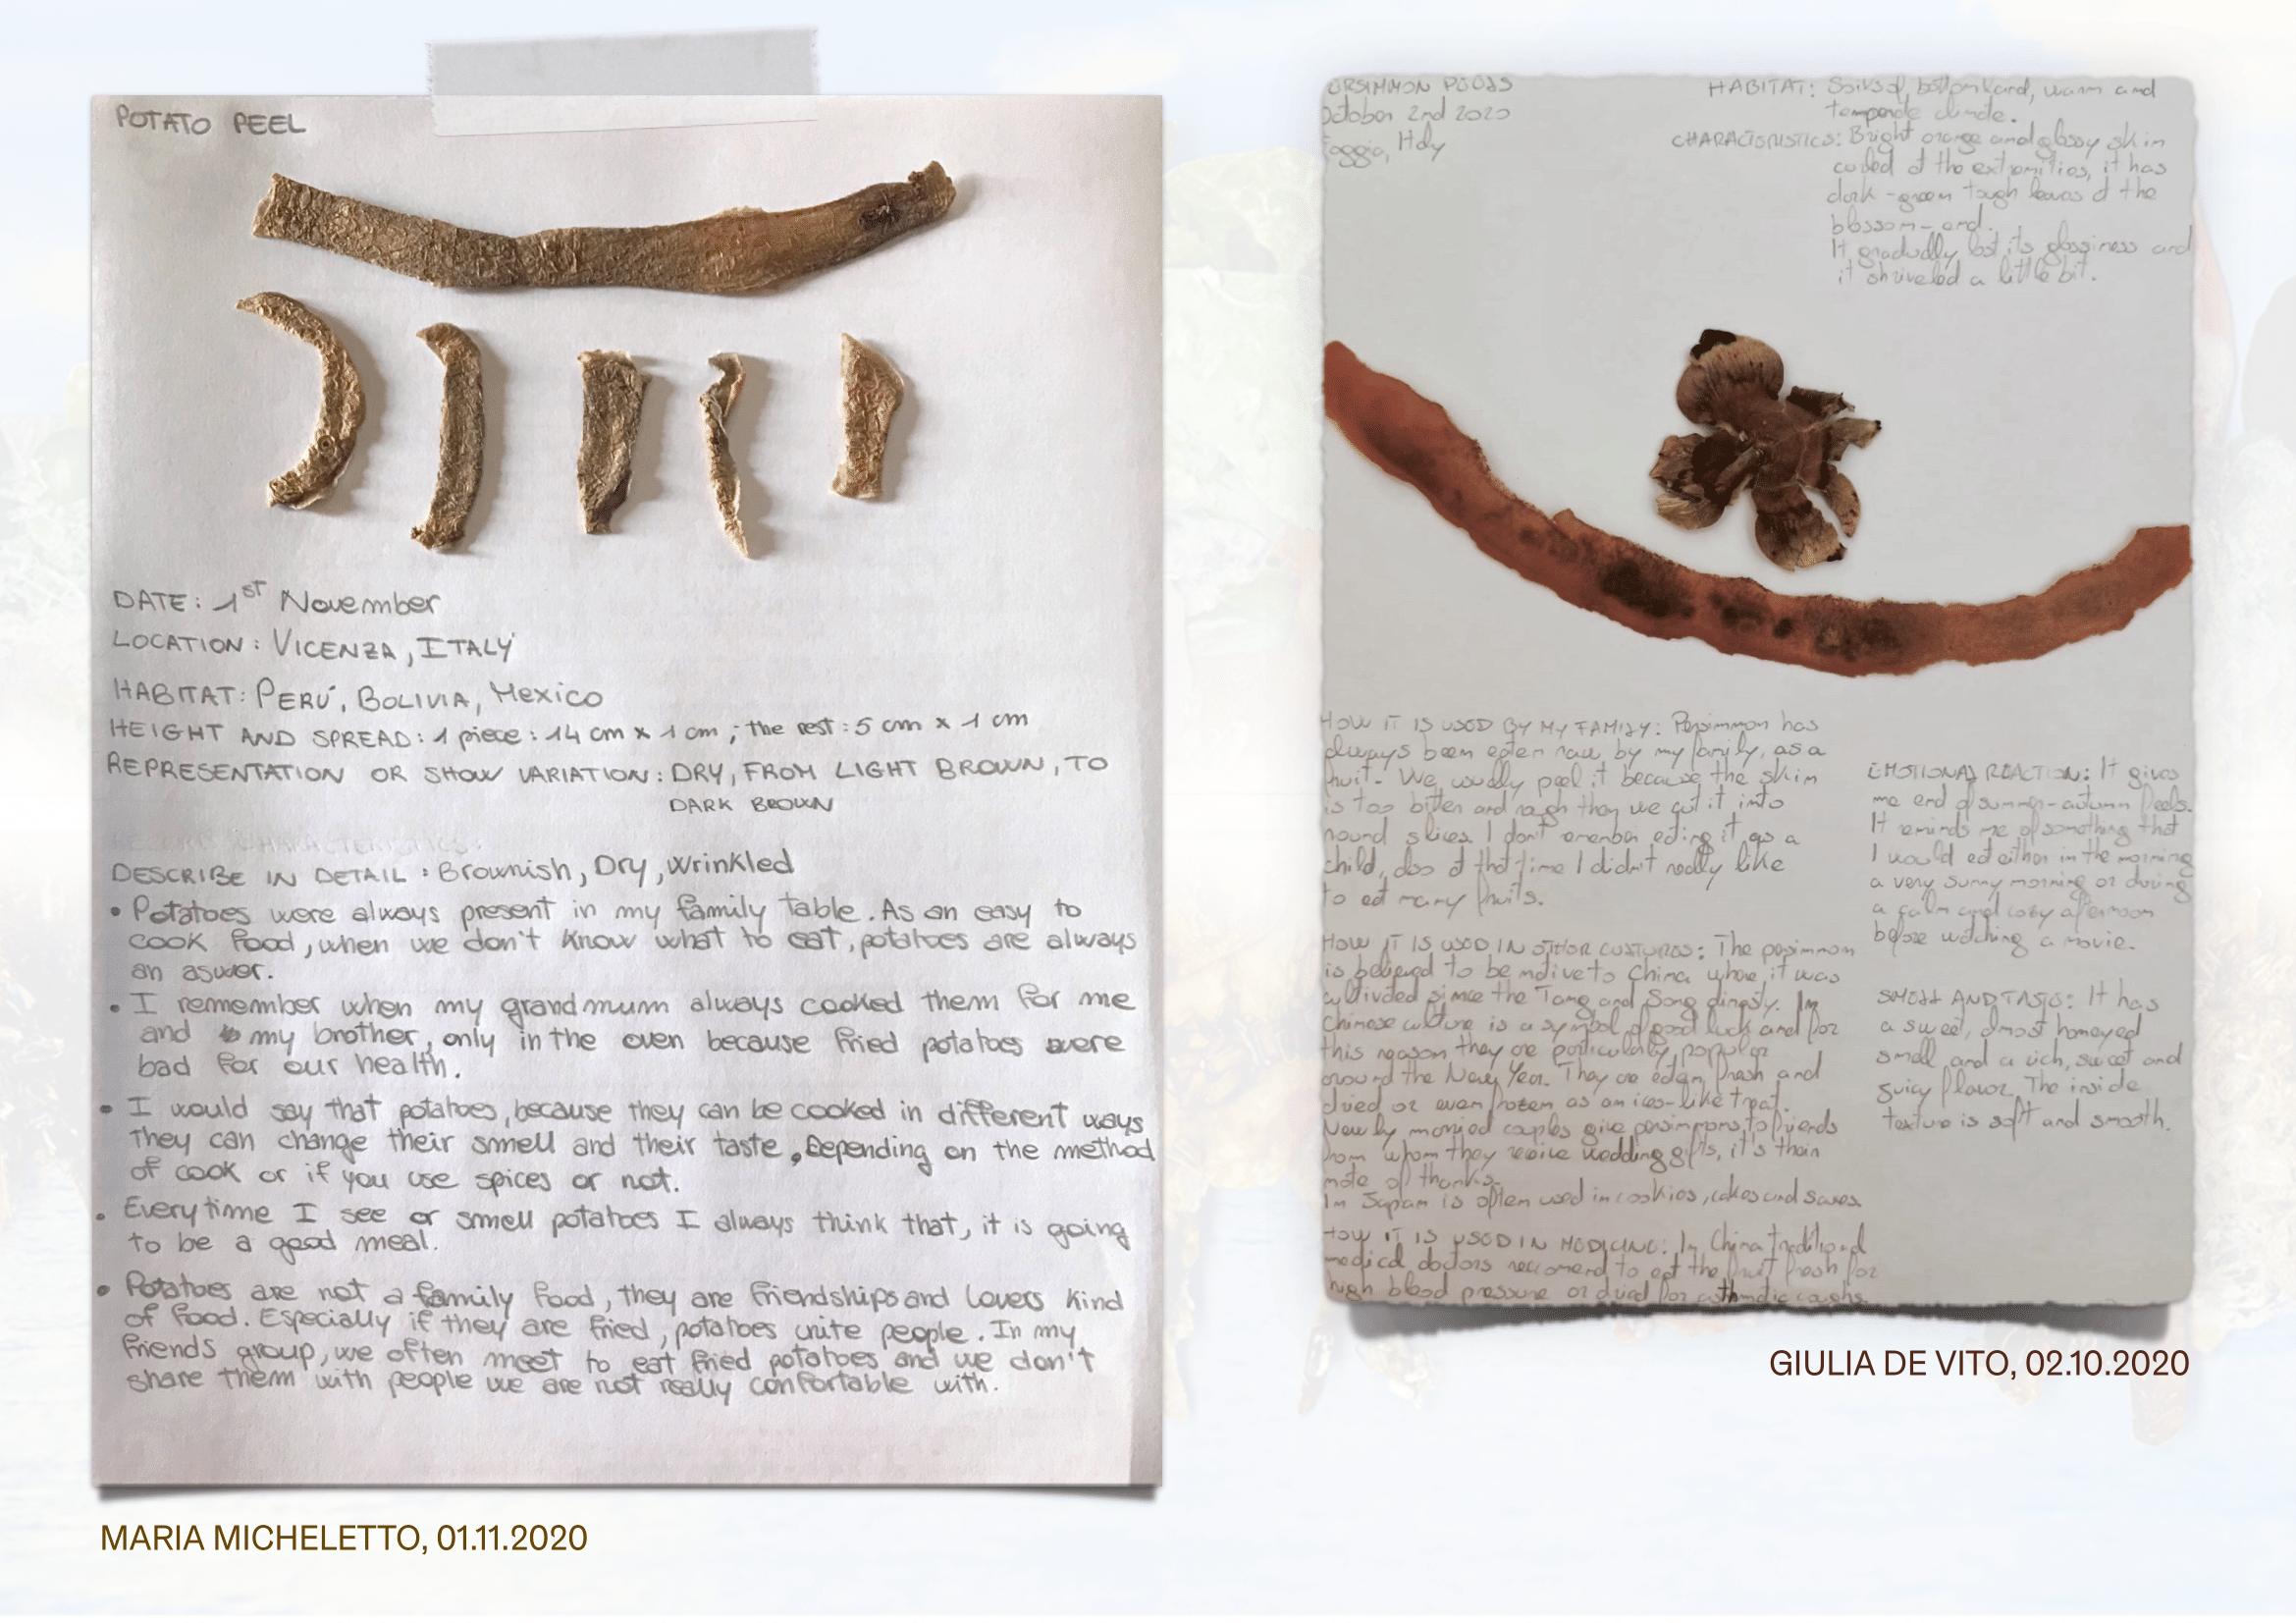 POTATO PEEL
DATE: 1st November
LOCATION: VICENZA, ITALY
HABITAT: PERÚ, BOLIVIA, Mexico
HEIGHT AND SPREAD: 1 piece: 14 cm x 1 cm; the rest: 5 cm x 1 cm
REPRESENTATION OR SHOW VARIATION: DRY, FROM LIGHT BROWN, TO
DARK BROWN
CHARACTERISTICS:
DESCRIBE IN DETAIL: Brownish, Dry, Wrinkled
• Potatoes were always present in my family table. As an easy to
cook food, when we don't know what to eat, potatoes are always
an aswer.
• I remember when my grandmum always cooked them for me
and my brother, only in the oven because fried potatoes were
bad for our health.
• I would say that potatoes, because they can be cooked in different ways
they can change their smell and their taste, Depending on the method
of cook or if you use spices or not.
• Everytime I see or smell potatoes I always think that, it is going
to be a good meal.
• Potatoes are not a family food, they are friendships and lovers kind
of food. Especially if they are fried, potatoes unite people. In my
friends group, we often meet to eat fried potatoes and we don't
share them with people we are not really confortable with.
MARIA MICHELETTO, 01.11.2020
October 2nd 2020
Foggia, Italy
HABITAT: bottomland, warm and
climate.
CHARACTERISTICS: Bright orange and glossy skin
at the extremities, it has
dark-green tough leaves at the
blossom-end.
It gradually lost its glossiness and
it shriveled a little bit.
HOW IT IS USED BY MY FAMILY: Persimmon has
always been eaten raw, by my family, as a
fruit. We usually peel it because the skin
is too bitter and rough then we cut it into
round slices. I don't remember eating it as a
child, also at that time I didn't really like
to eat many fruits.
HOW IT IS USED IN OTHER CULTURES: The persimmon
is believed to be native to China where it was
cultivated since the Tang and Song dinasty. In
chinese culture is a symbol of good luck and for
this reason they are particularly popular
around the New Year. They are eaten fresh and
dried or even frozen as an ices-like treat.
Newly married couples give persimmons to friends
from whom they receive wedding gifts, it's their
note of thanks.
In Japan is often used in cookies, cakes and
HOW IT IS USED IN MEDICINE: In China traditional
medical doctors reccomend to eat the fruit fresh for
high blood pressure or dried for asthmatic coughs.
EMOTIONAL REACTION: It gives
me end of summer-autumn feels.
It reminds me of something that
I would eat either in the morning
a very sunny morning or during
a calm and cosy afternoon
before watching a movie.
SMELL AND TASTE: It has
a sweet, almost honeyed
smell and a rich, sweet and
juicy flavor. The inside
texture is soft and smooth.
GIULIA DE VITO, 02.10.2020